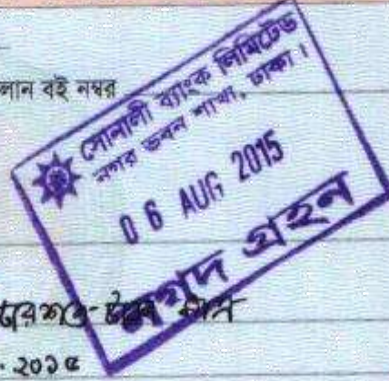 লান বই নম্বর
সোনালী ব্যাংক লিমিটেড
নগর ভবন শাখা, ঢাকা।
0 6 AUG 2015
নগদ গ্রহন
২০১৫